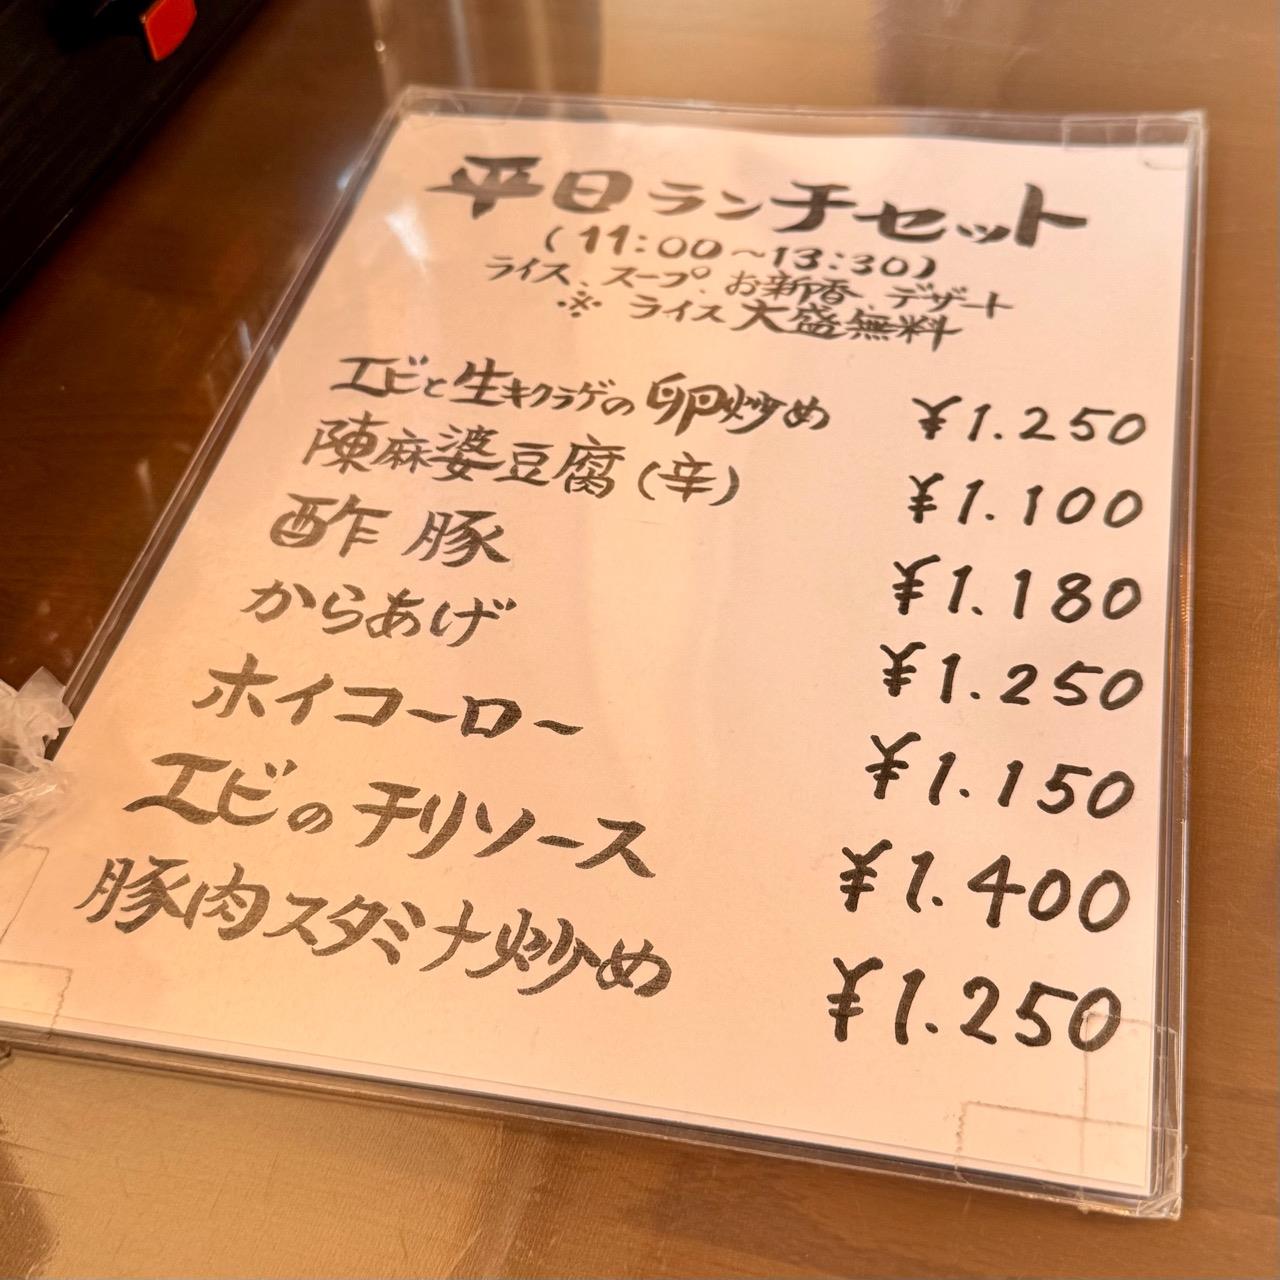 平日ランチセット
(11:00～13:30)
ライス、スープ、お新香、デザート
※ ライス大盛無料
エビと生キクラゲの卵炒め ¥1.250
陳麻婆豆腐(辛) ¥1.100
酢豚 ¥1.180
からあげ ¥1.250
ホイコーロー ¥1.150
エビのチリソース ¥1.400
豚肉スタミナ炒め ¥1.250